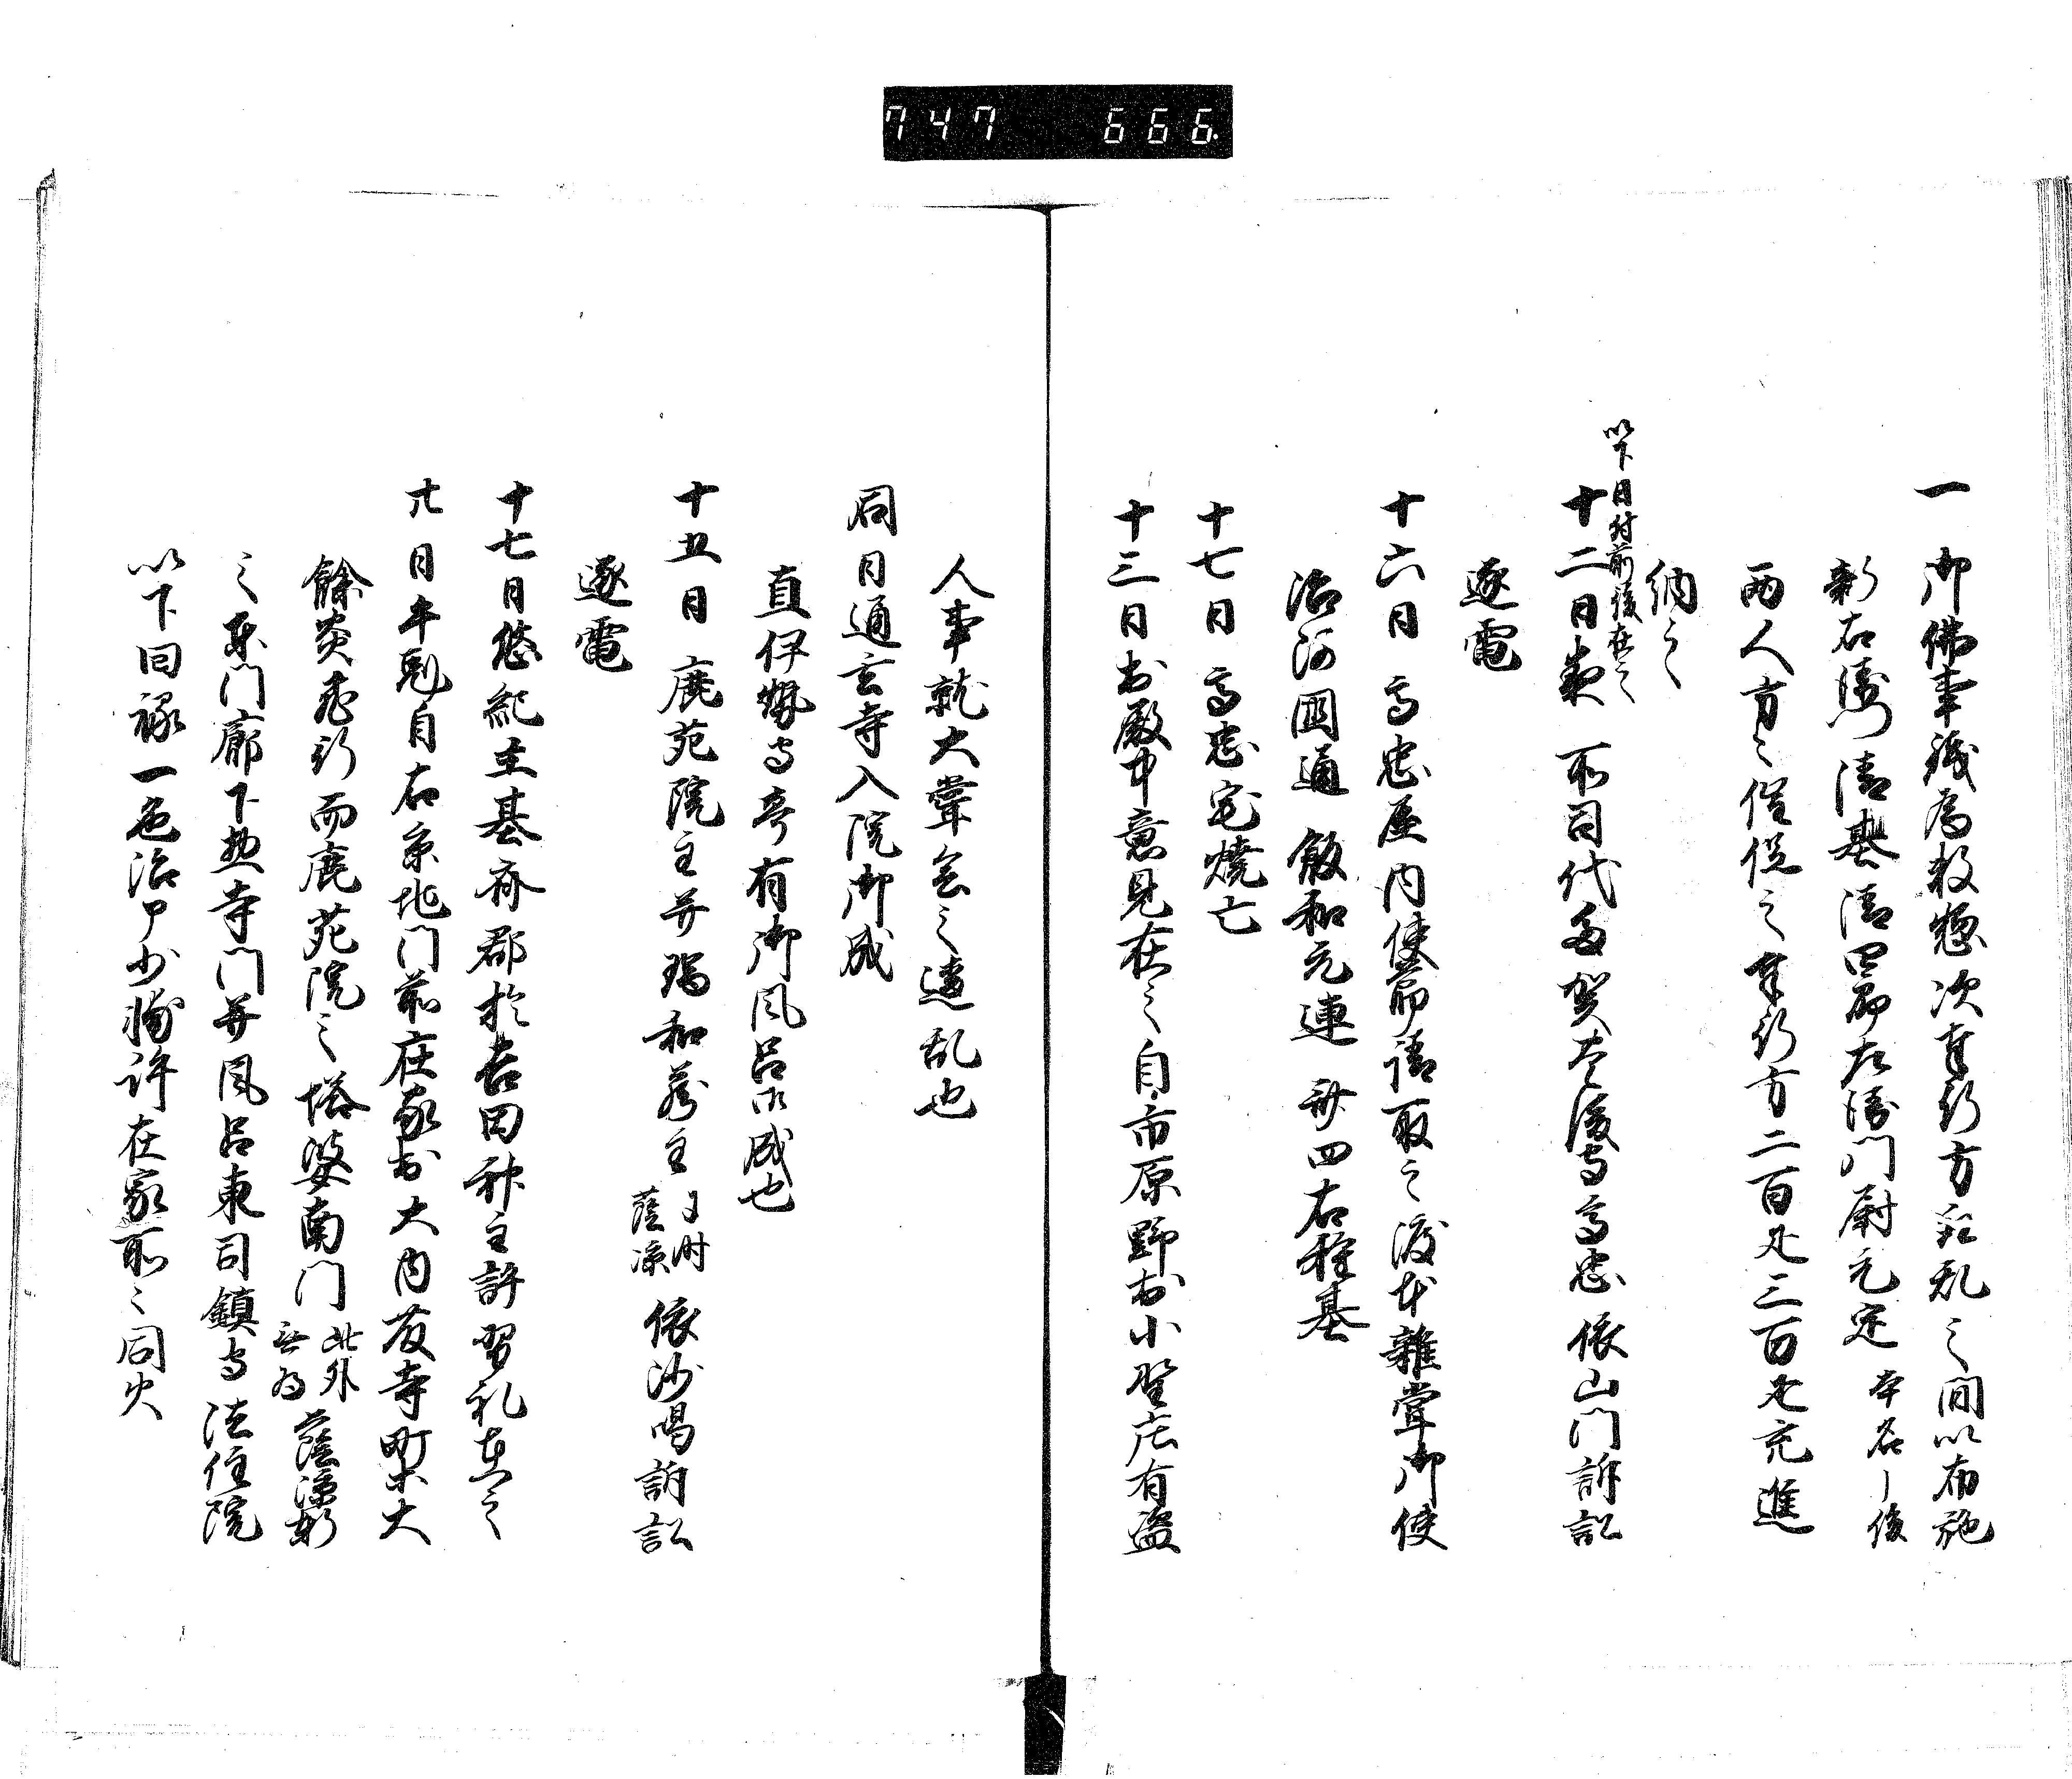 747 666
一 御佛事錢為毅怱次奉行方錯乱之間以布施
新右衛門清基清四郎左衛門尉元定 本名後
両人方之催促之奉行方二百疋三百疋充進
納之
以下日付前後在之
十二日夜 所司代多賀豊後守高忠依山門訴訟
逐電
十六日 高忠屋内使節請取之渡本雜掌御使
治河国通 飯和元連 斎四右種基
十七日 高忠宅燒亡
十三日於殿中意見在之自市原野於小聖庄有盗
人事就大嘗会之違乱也
同日通玄寺入院御成
直伊勢守亭有御風呂御成也
十五日 鹿苑院主并瑞和蔭主 于時蔭凉 依沙喝訴訟
逐電
十七日悠紀主基斎郡於吉田神主許習礼在之
廿日午剋自右京地門前在家出大内万寺町大
餘炎飛行而鹿苑院之塔婆南門 此外無為 蔭凉軒
之東門廊下惣寺門并風呂東司鎮守法住院
以下回祿一色治部少輔許在家所之同火